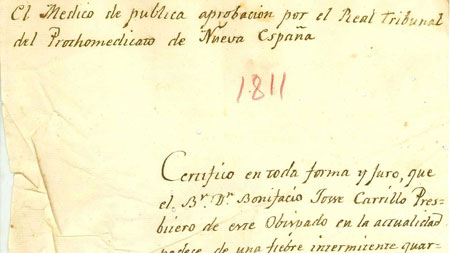 El Medico de publica aprobacion por el Real Tribunal
del Prothomedicato de Nueva España
1811
Certifico en toda forma y Juro, que
el Br. Dn. Bonifacio Jose Carrillo Pres-
bitero de este Obispado en la actualidad
padece de una fiebre intermitente quar-